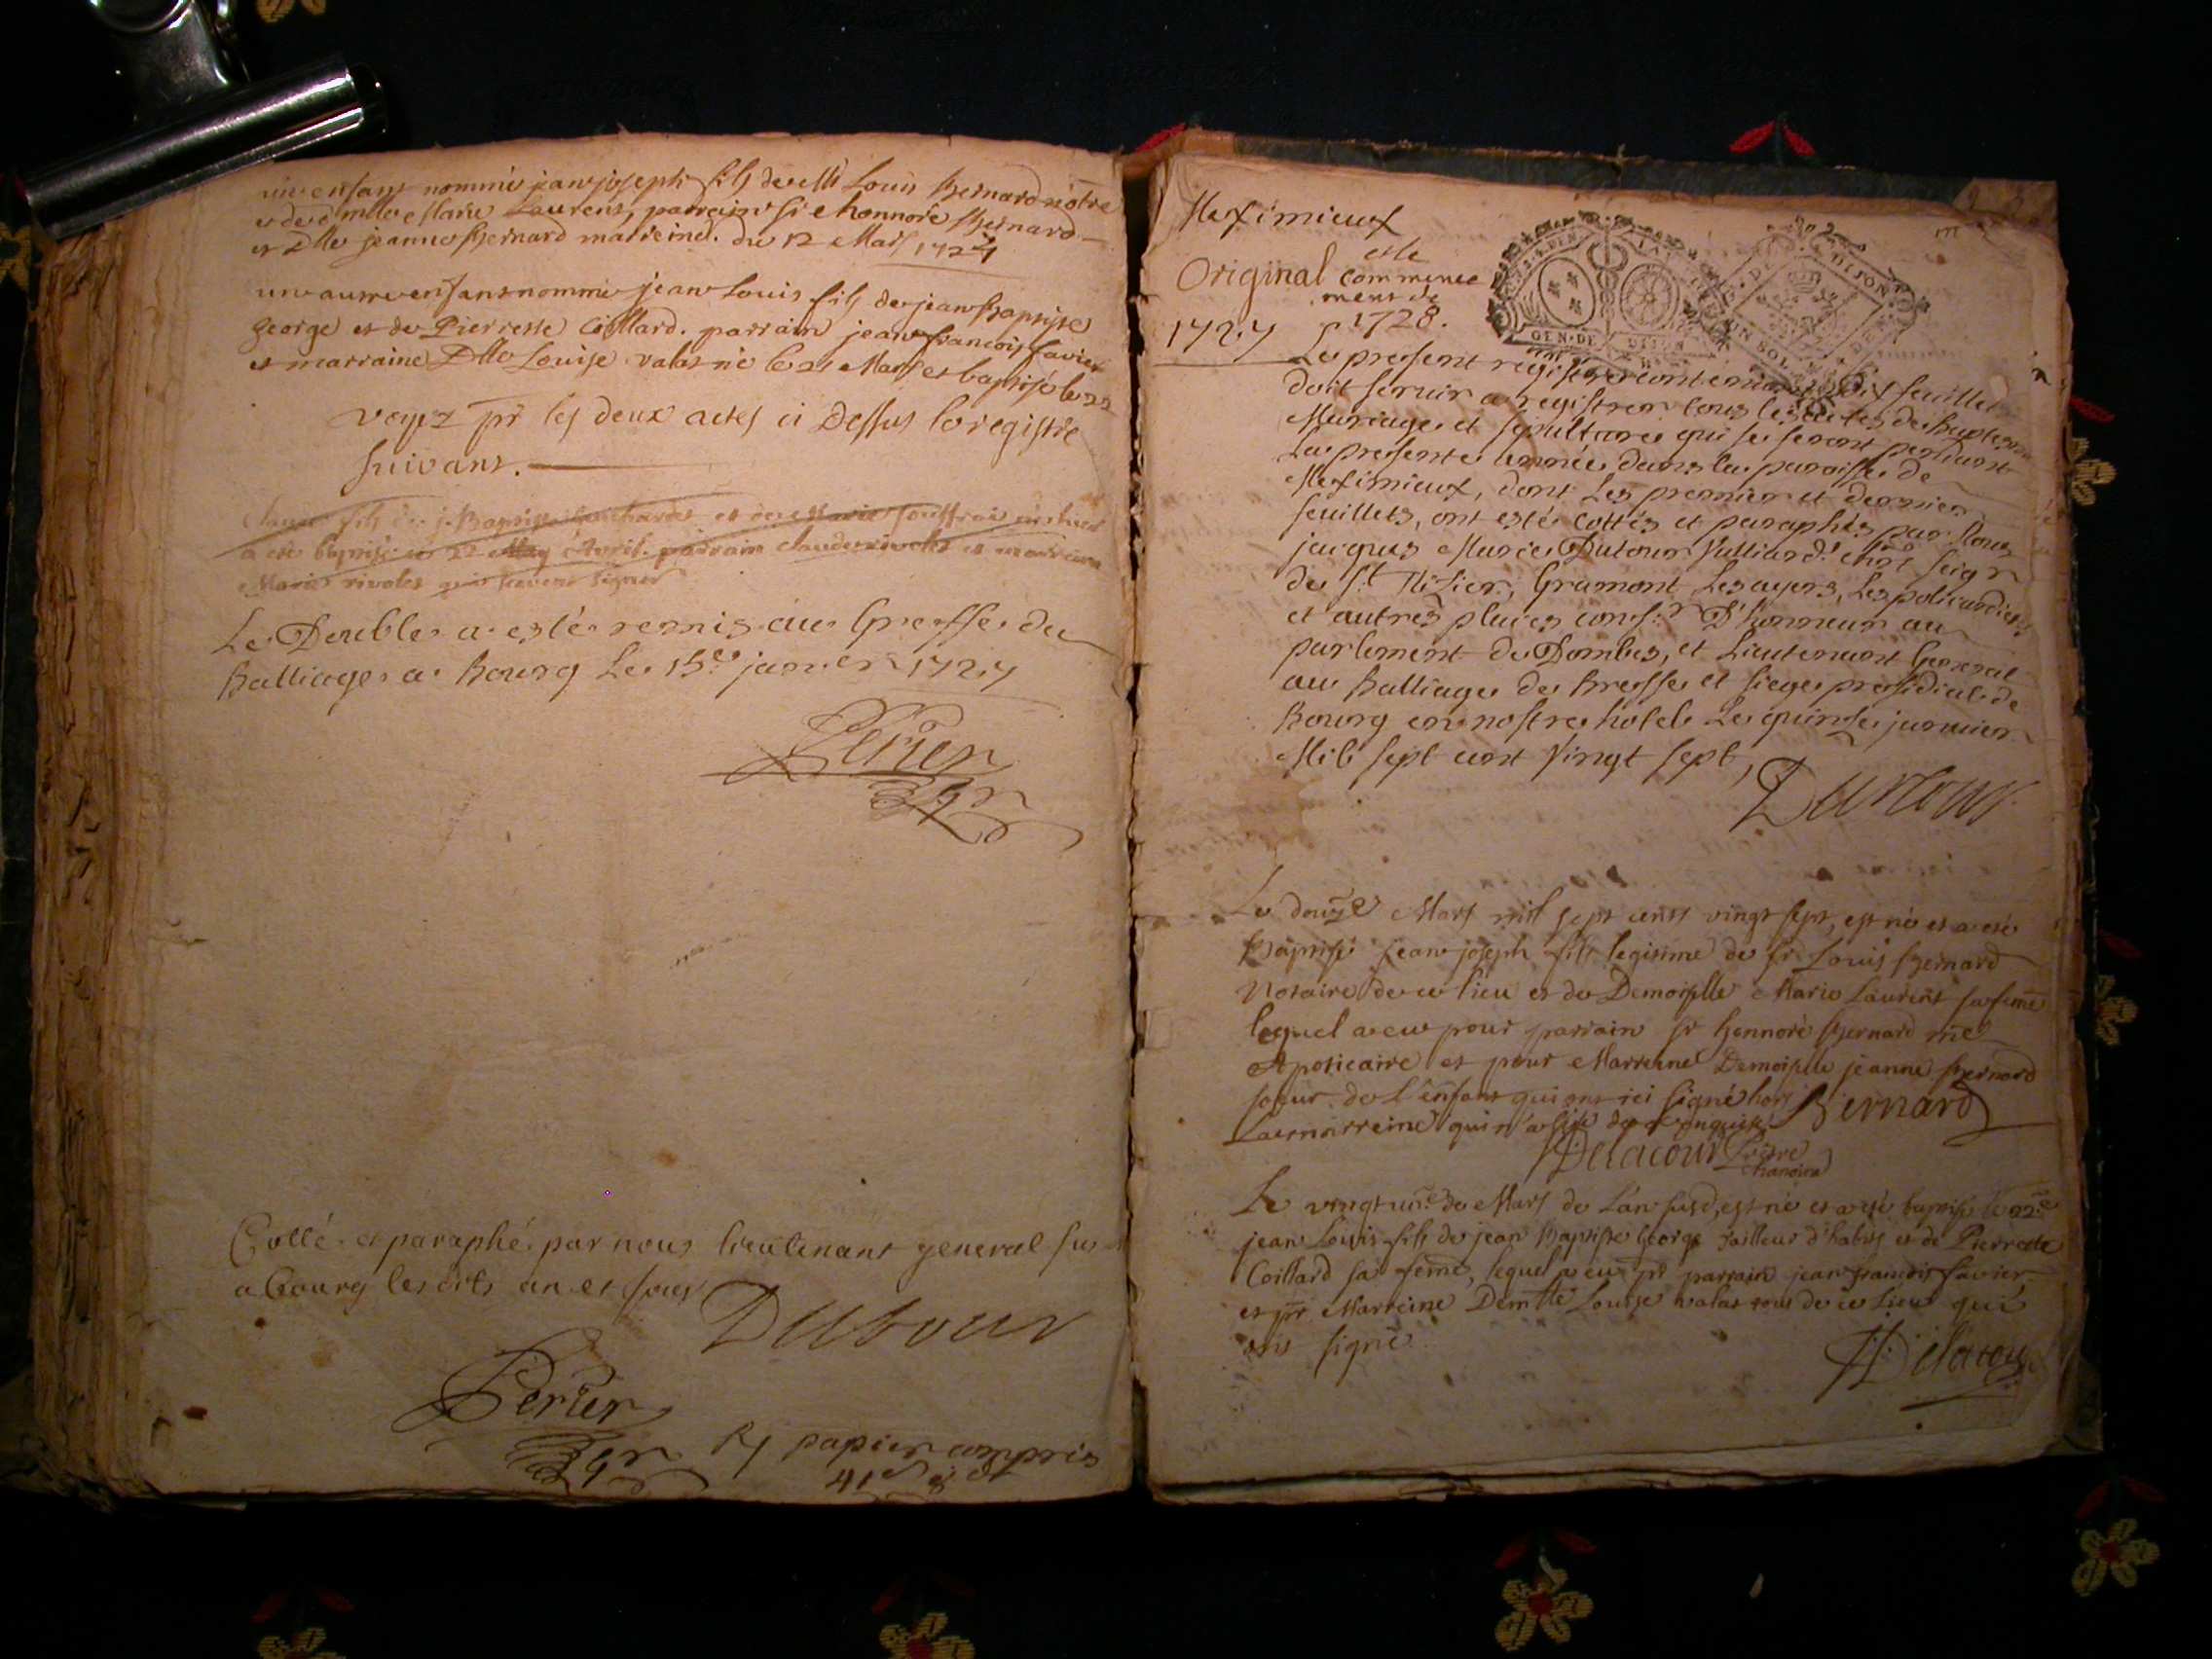 un enfant nommé jean joseph fils de Mr Louis Bernard notre
et de d.mlle Marie Laurent, parrain sr honnoré Bernard
et Dlle jeanne Bernard marreine. du 12 Mars 1727
un autre enfant nommé jean Louis fils de jean Baptiste
George et de Pierrette Coillard. parrain jean francois favier
et marraine Dlle Louise valat né le 21 Mars et baptisé le 22
voyez pr les deux actes ci Dessus le registre
suivant.
a été baptisé le 22 May Avril. parrain claude rivolet et marraine
Marie rivolet
Le Double a esté remis au Greffe du
Balliage a Bourg Le 15e janvier 1727
Perier
Cotté et paraphé par nous lieutenant general sus
a bourg les dits an et jour
Dutour
Perier
papier compris
Meximieux
Original et le commence
ment de
1727 1728.
Le present registre contenant dix feuillets
doit servir a registrer tous les actes de Baptesme
Mariage et sepulture qui se feront pendant
La presente année dans la paroisse de
Meximieux, dont Les premier et dernier
feuillets, ont esté cottés et paraphés par Nous
jacques Marie Dutour Vulliard chlr seigr
de St Nizier, Gramont Les ayers, Les policardieres
et autres places consr D'honneur au
parlement de Dombes, et Lieutenant General
au Balliage de Bresse et siege presidial de
Bourg en nostre hotel Le quinze janvier
Mil sept cent vingt sept,
Dutour
Le douze Mars mil sept cents vingt sept, est né et a eté
Baptisé jean joseph fils legitime de sr Louis Bernard
Notaire de ce lieu et de Demoiselle Marie Laurent sa feme
lequel a eu pour parrain sr honnoré Bernard me
Apoticaire et pour Marreine Demoiselle jeanne Bernard
soeur de l'enfant qui ont ici signé hors Bernard
La marreine qui n'a sçu de ce enquise
Delacour Prêtre
chanoine
Le vingt un de Mars de L'an susd, est né et a eté baptisé le 22e
jean Louis fils de jean Baptiste George tailleur d'habits et de Pierrette
Coillard sa feme, lequel a eu pr parrain jean francois favier
et pr Marreine Demlle Louise valat tous de ce Lieu qui
ont signé
Delacour